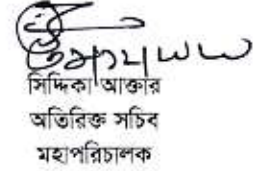 সিদ্দিকা আক্তার
অতিরিক্ত সচিব
মহাপরিচালক